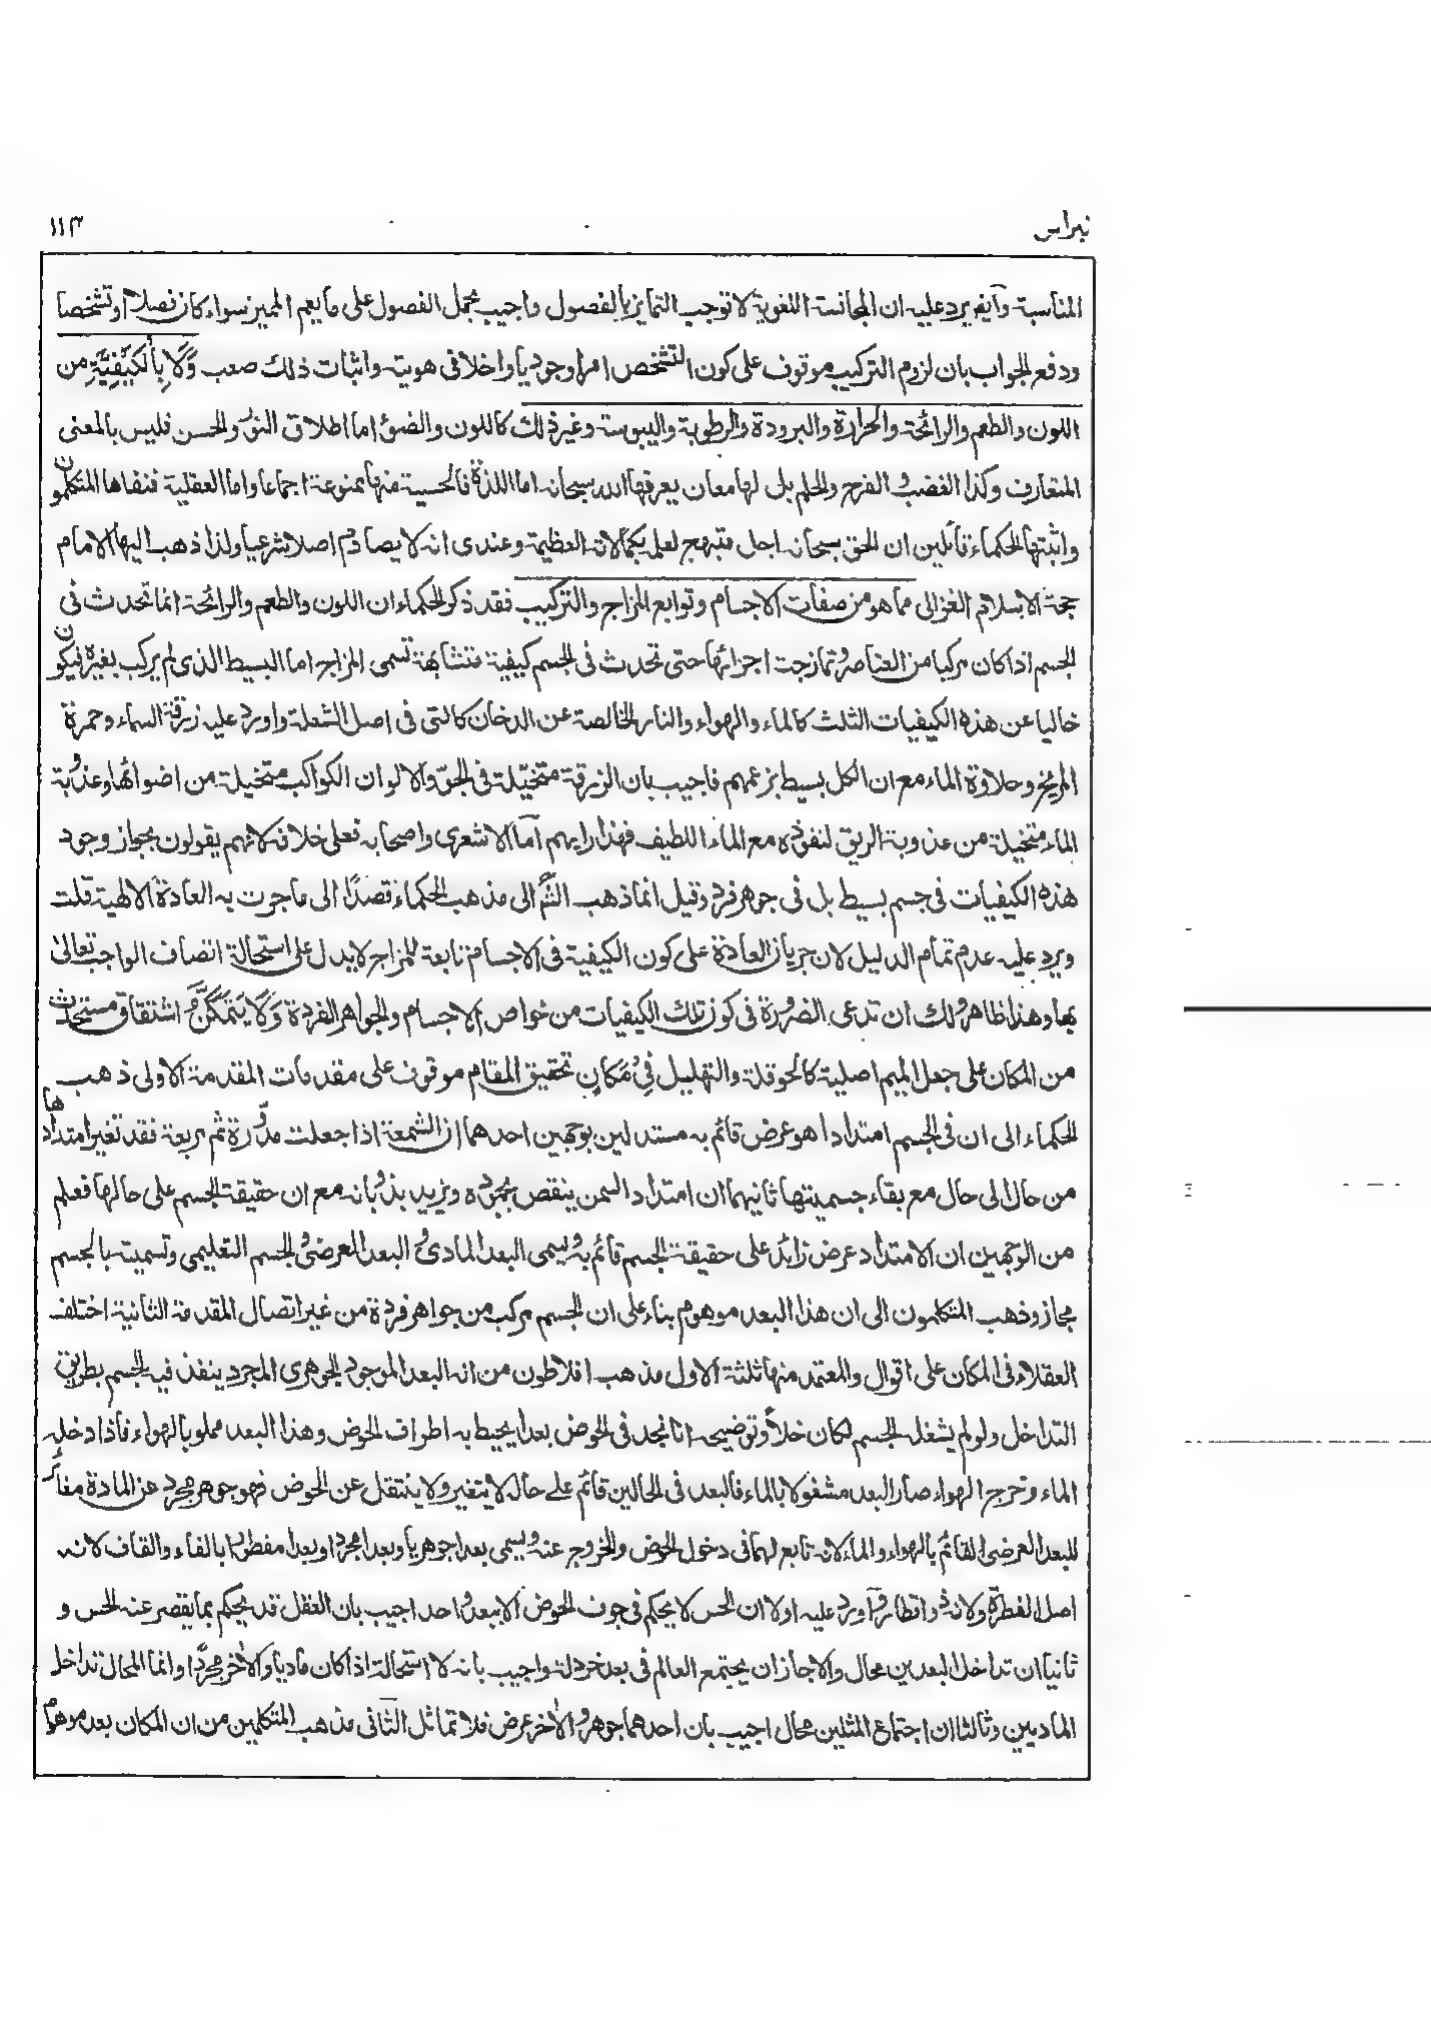 نبراس ١١٣
المناسبة وايضا يرد عليه ان المجانسة اللغوية لا توجب التمايز بالفصول واجيب بحمل الفصول على ما يعم المميز سواء كان فصلا او تشخصا
ودفع الجواب بان لزوم التركيب موقوف على كون التشخص امرا وجوديا داخلا فى هويته واثبات ذلك صعب وَّلَا بِالْكَيْفِيَّةِ من
اللون والطعم والرائحة والحرارة والبرودة والرطوبة واليبوسة وغير ذلك كاللون والضوء اما اطلاق النور والحسن فليس بالمعنى
المتعارف وكذا الغضب والفرح والحلم بل لها معان يعرفها الله سبحانه اما اللذة فالحسية منها ممنوعة اجماعا واما العقلية فنفاها المتكلمون
واثبتها الحكماء قائلين ان الحق سبحانه اجل مبتهج لعلمه بكمالاته العظيمة وعندى انه لا يصادم اصلا شرعيا ولذا ذهب اليها الامام
حجة الاسلام الغزالى مما هو من صفات الاجسام وتوابع المزاج والتركيب فقد ذكر الحكماء ان اللون والطعم والرائحة انما تحدث فى
الجسم اذا كان مركبا من العناصر وتمازجت اجزائها حتى تحدث فى الجسم كيفية متشابهة تسمى المزاج اما البسيط الذى لم يركب بغيره فيكون
خاليا عن هذه الكيفيات الثلث كالماء والهواء والنار الخالصة عن الدخان كالتى فى اصل الشعلة واورد عليه زرقة السماء وحمرة
المريخ وحلاوة الماء مع ان الكل بسيط بزعمهم فاجيب بان الزرقة متخيّلة فى الجوّ والالوان الكواكب متخيلة من اضوائها وعذوبة
الماء متخيلة من عذوبة الريق لنفوذه مع الماء اللطيف فهذا رايهم اما الاشعرى واصحابه فعلى خلافه لانهم يقولون بجواز وجود
هذه الكيفيات فى جسم بسيط بل فى جوهر فرد وقيل انما ذهب الشّم الى مذهب الحكماء قصدًا الى ما جرت به العادة الالهية قلت
ويرد عليه عدم تمام الدليل لان جريان العادة على كون الكيفية فى الاجسام تابعة للمزاج لا يدل على استحالة اتصاف الواجب تعالى
بها وهذا ظاهر ولك ان تدعى الضرورة فى كون تلك الكيفيات من خواص الاجسام والجواهر الفردة وَلَا يَتَمَكَّنُ اشتقاق مستحدث
من المكان على جعل الميم اصلية كالحوقلة والتهليل فِىْ مَكَانٍ تحقيق المقام موقوف على مقدمات المقدمة الاولى ذهب
الحكماء الى ان فى الجسم امتدادا هو عرض قائم به مستدلين بوجهين احدهما ان الشمعة اذا جعلت مدوّرة ثم مربعة فقد تغير امتدادها
من حال الى حال مع بقاء جسميتها ثانيهما ان امتداد السمن ينقص بجموده ويزيد بذوبانه مع ان حقيقة الجسم على حالها فعلم
من الوجهين ان الامتداد عرض زائد على حقيقة الجسم قائم به ويسمى البعد المادى والبعد العرضى والجسم التعليمى وتسميته بالجسم
مجاز وذهب المتكلمون الى ان هذا البعد موهوم بناء على ان الجسم مركب من جواهر فردة من غير اتصال المقدمة الثانية اختلف
العقلاء فى المكان على اقوال والمعتمد منها ثلثة الاول مذهب افلاطون من انه البعد الموجود الجوهرى المجرد ينفذ فيه الجسم بطريق
التداخل ولو لم يشغله الجسم لكان خلأ وتوضيحه انا نجد فى الحوض بعدا يحيط به اطراف الحوض وهذا البعد مملو بالهواء فاذا دخله
الماء وخرج الهواء صار البعد مشغولا بالماء فالبعد فى الحالين قائم على حاله لا يتغير ولا ينتقل عن الحوض فهو جوهر مجرد عن المادة مغائر
للبعد العرضى القائم بالهواء والماء لانه تابع لهما فى دخول الحوض والخروج عنه ويسمى بعدا جوهريا وبعدا مجردا وبعدا مفطورا بالفاء والقاف لانه
اصل الفطرة ولانه ذو اقطار واورد عليه اولا ان الحس لا يحكم فى جوف الحوض الا ببعد واحد اجيب بان العقل قد يحكم بما يقصر عنه الحس و
ثانيا ان تداخل البعدين محال والا جاز ان يجتمع العالم فى بعد خردلة واجيب بانه لا استحالة اذا كان ماديا والاخر مجردًا وانما المحال تداخل
الماديين وثالثا ان اجتماع المثلين محال اجيب بان احدهما جوهر والاخر عرض فلا تماثل الثانى مذهب المتكلمين من ان المكان بعد موهوم